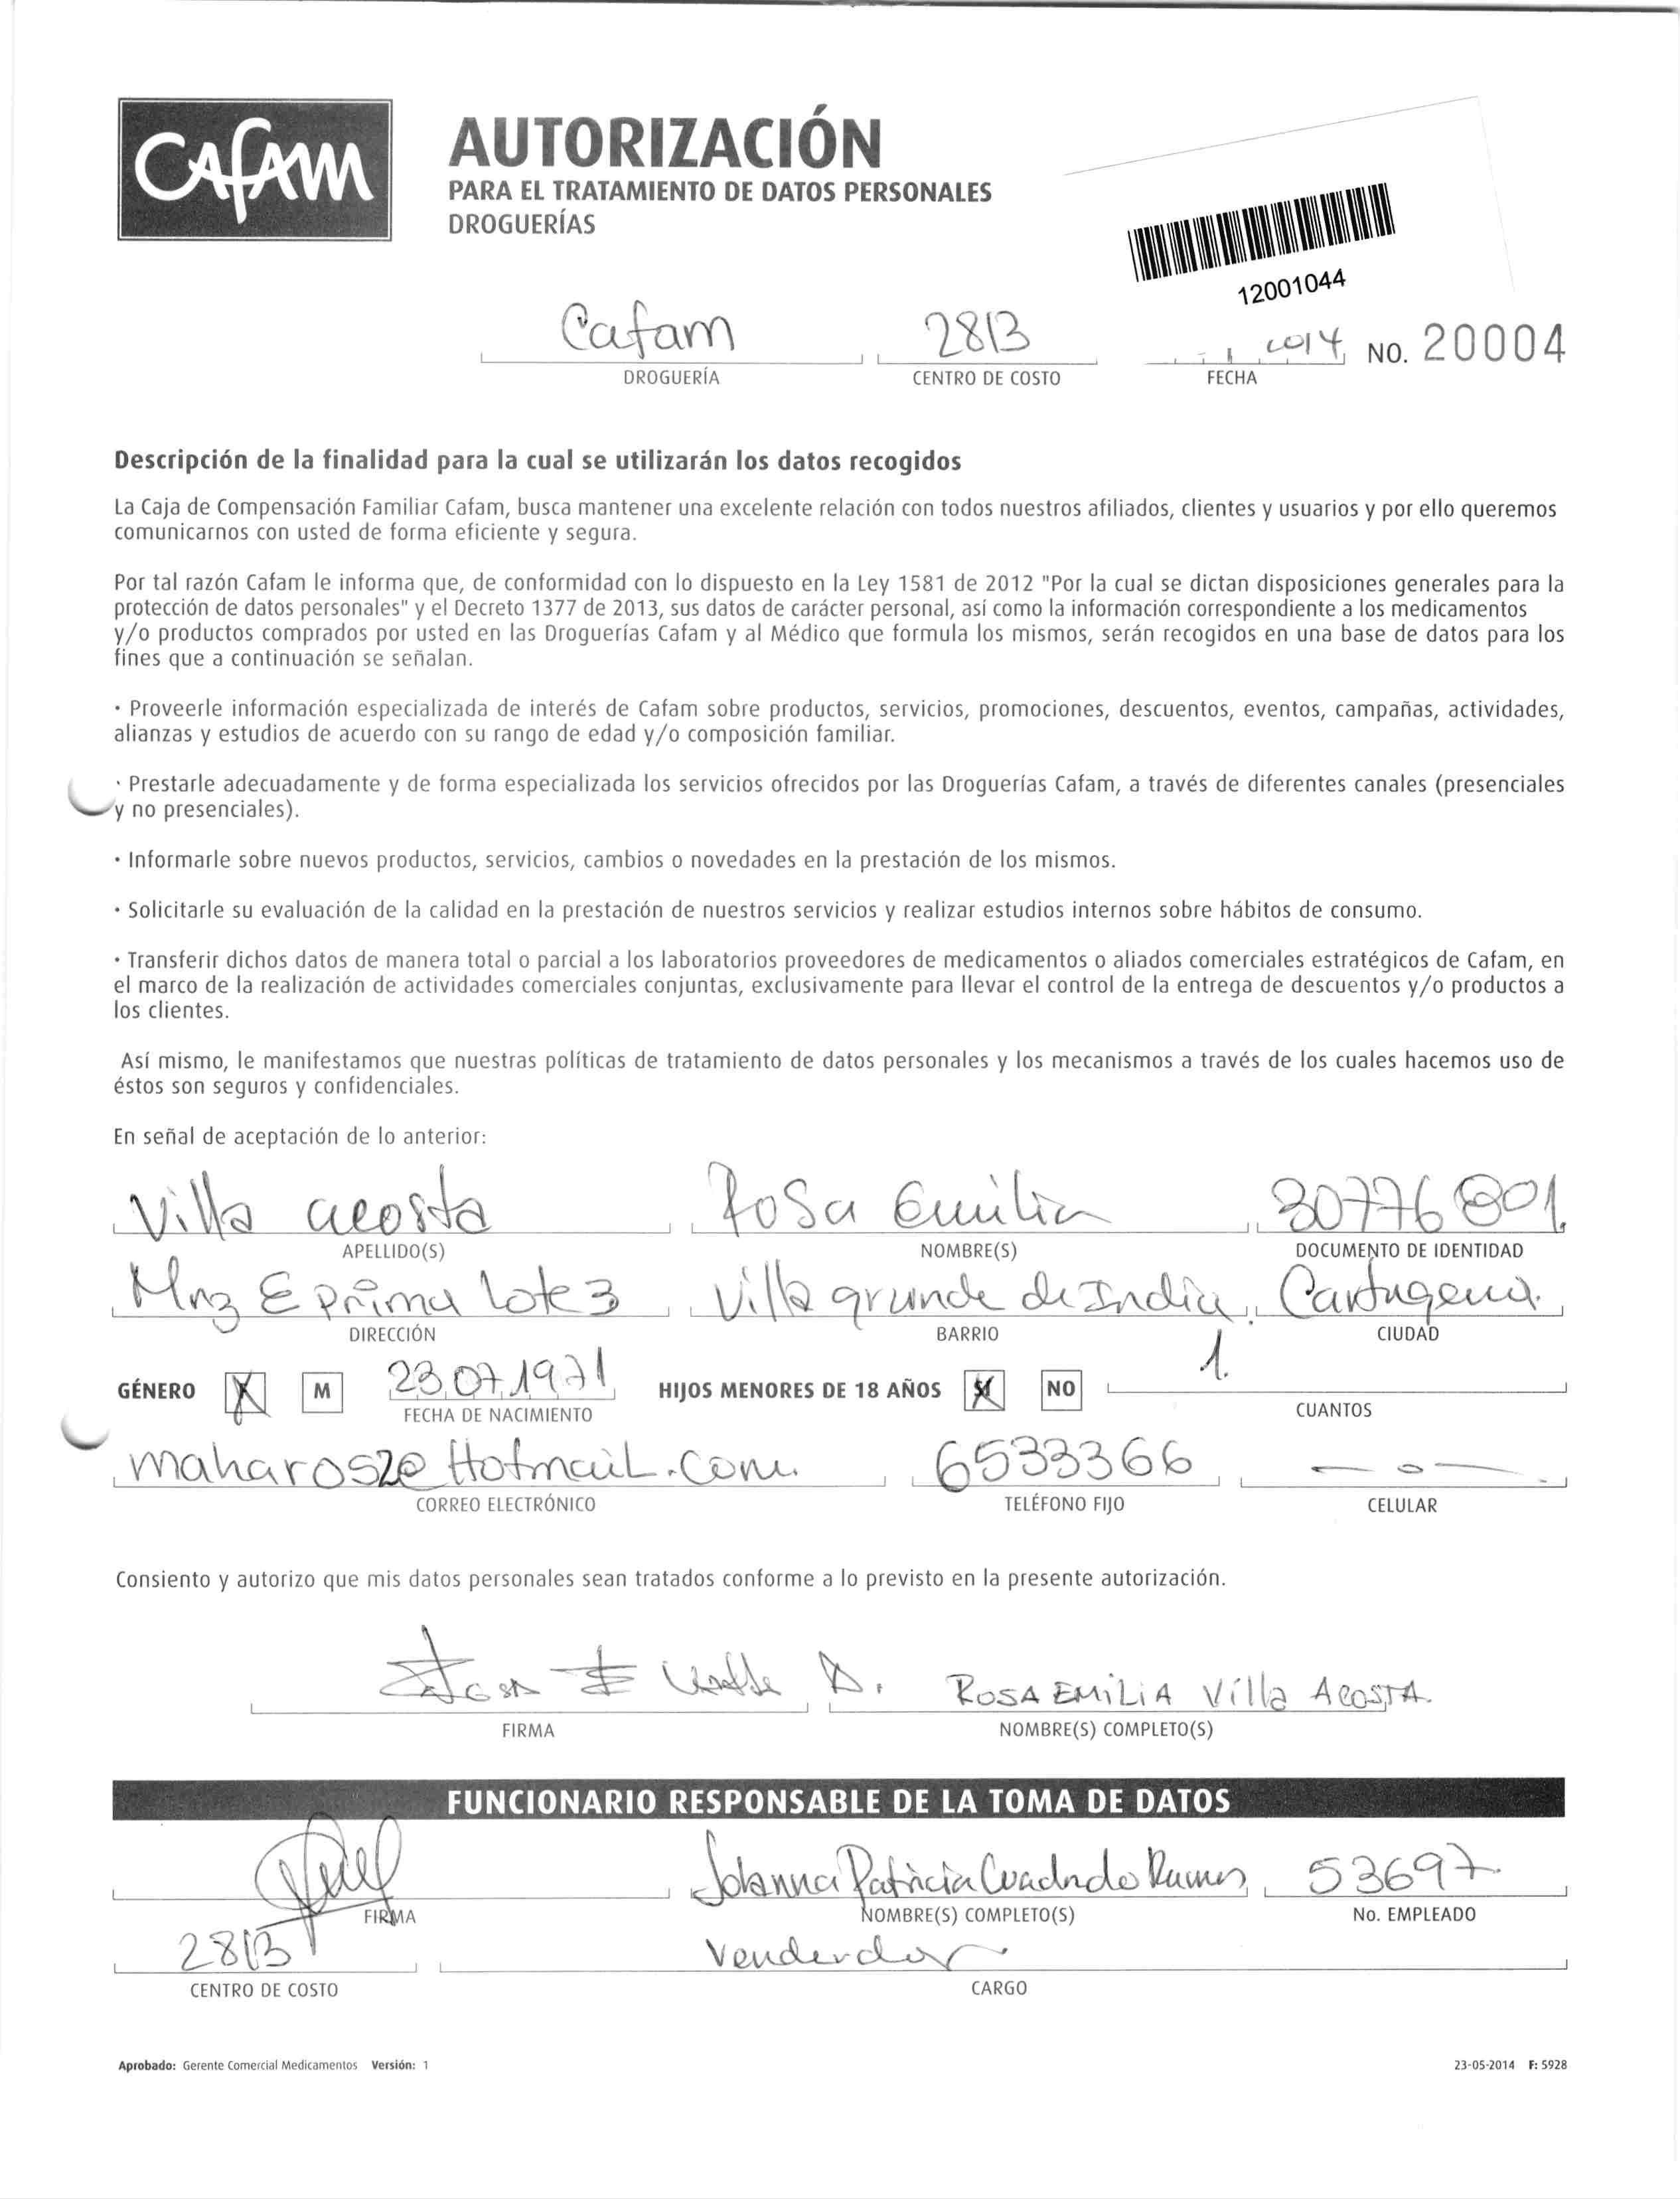 Cafam
AUTORIZACIÓN
PARA EL TRATAMIENTO DE DATOS PERSONALES
DROGUERÍAS
12001044
Cafam 2813 2014 NO. 20004
DROGUERÍA CENTRO DE COSTO FECHA
Descripción de la finalidad para la cual se utilizarán los datos recogidos
La Caja de Compensación Familiar Cafam, busca mantener una excelente relación con todos nuestros afiliados, clientes y usuarios y por ello queremos
comunicarnos con usted de forma eficiente y segura.
Por tal razón Cafam le informa que, de conformidad con lo dispuesto en la Ley 1581 de 2012 "Por la cual se dictan disposiciones generales para la
protección de datos personales" y el Decreto 1377 de 2013, sus datos de carácter personal, así como la información correspondiente a los medicamentos
y/o productos comprados por usted en las Droguerías Cafam y al Médico que formula los mismos, serán recogidos en una base de datos para los
fines que a continuación se señalan.
· Proveerle información especializada de interés de Cafam sobre productos, servicios, promociones, descuentos, eventos, campañas, actividades,
alianzas y estudios de acuerdo con su rango de edad y/o composición familiar.
· Prestarle adecuadamente y de forma especializada los servicios ofrecidos por las Droguerías Cafam, a través de diferentes canales (presenciales
y no presenciales).
· Informarle sobre nuevos productos, servicios, cambios o novedades en la prestación de los mismos.
· Solicitarle su evaluación de la calidad en la prestación de nuestros servicios y realizar estudios internos sobre hábitos de consumo.
· Transferir dichos datos de manera total o parcial a los laboratorios proveedores de medicamentos o aliados comerciales estratégicos de Cafam, en
el marco de la realización de actividades comerciales conjuntas, exclusivamente para llevar el control de la entrega de descuentos y/o productos a
los clientes.
Así mismo, le manifestamos que nuestras políticas de tratamiento de datos personales y los mecanismos a través de los cuales hacemos uso de
éstos son seguros y confidenciales.
En señal de aceptación de lo anterior:
Villa acosta Rosa Emilia 30776801.
APELLIDO(S) NOMBRE(S) DOCUMENTO DE IDENTIDAD
Mnz E prima lote 3 Villa grande de India. Cartagena.
DIRECCIÓN BARRIO CIUDAD
GÉNERO M 23.07.1971 HIJOS MENORES DE 18 AÑOS SI NO 1.
FECHA DE NACIMIENTO CUANTOS
maharos2@Hotmail.com. 6533366 — 0 —
CORREO ELECTRÓNICO TELÉFONO FIJO CELULAR
Consiento y autorizo que mis datos personales sean tratados conforme a lo previsto en la presente autorización.
Rosa E Villa A. ROSA EMiLiA Villa ACOSTA.
FIRMA NOMBRE(S) COMPLETO(S)
FUNCIONARIO RESPONSABLE DE LA TOMA DE DATOS
Johanna Patricia Cuadrado Ramos 53697
FIRMA NOMBRE(S) COMPLETO(S) No. EMPLEADO
2813 Venderdor
CENTRO DE COSTO CARGO
Aprobado: Gerente Comercial Medicamentos Versión: 1 23-05-2014 F: 5928